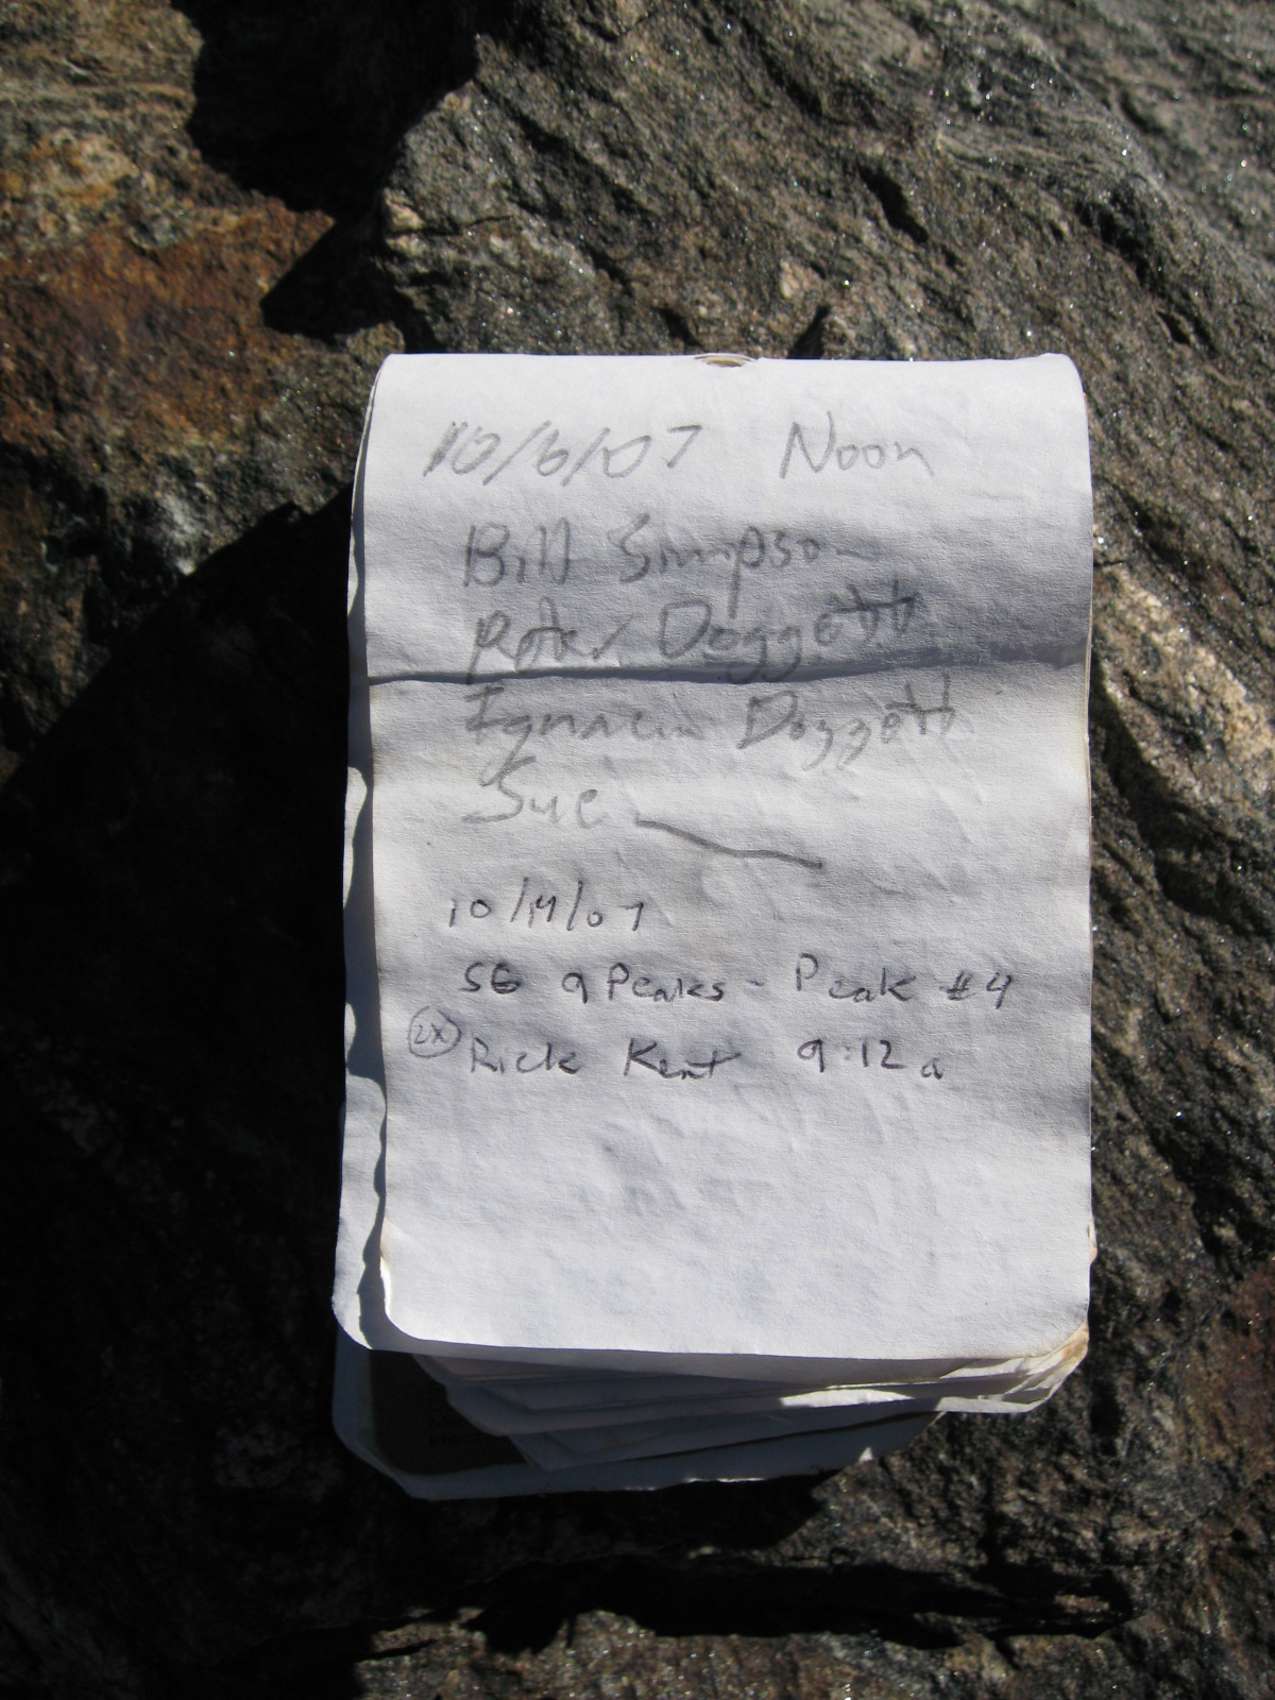 10/6/07 Noon
Bill Simpson
Peter Doggett
Ignacio Doggett
Sue
10/14/07
SG 9 Peaks - Peak #4
2X Rick Kent 9:12 a